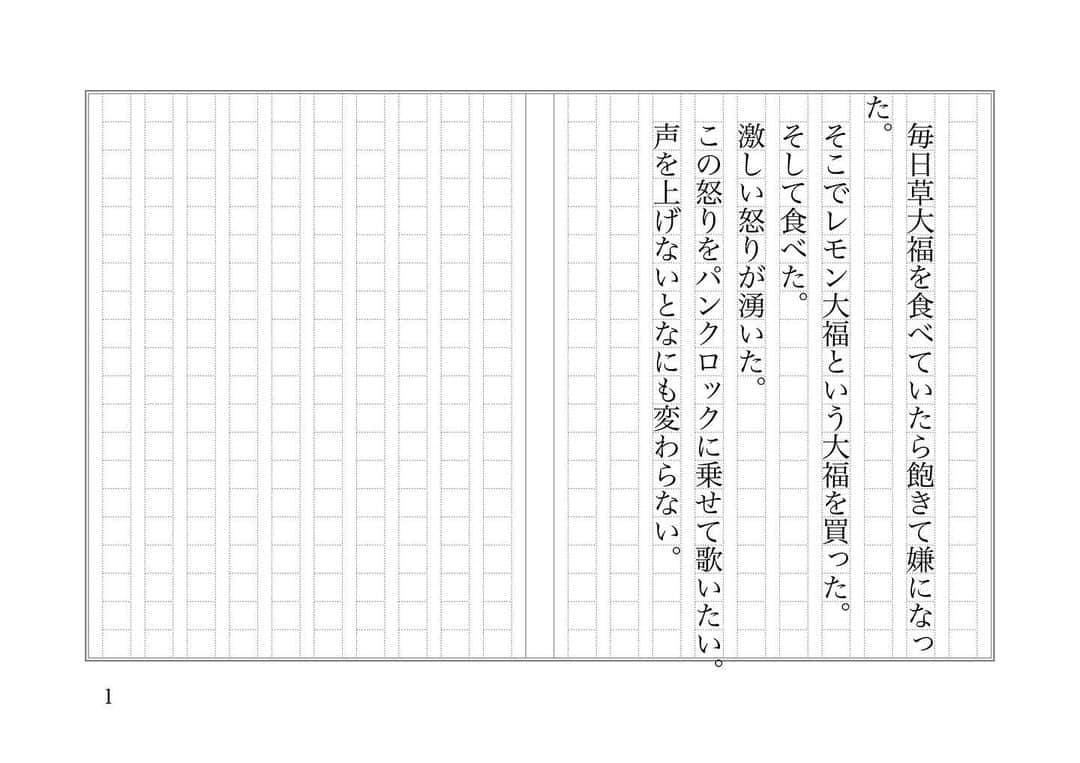 毎日草大福を食べていたら飽きて嫌になっ
た。
　そこでレモン大福という大福を買った。
　そして食べた。
　激しい怒りが湧いた。
　この怒りをパンクロックに乗せて歌いたい。
　声を上げないとなにも変わらない。
1